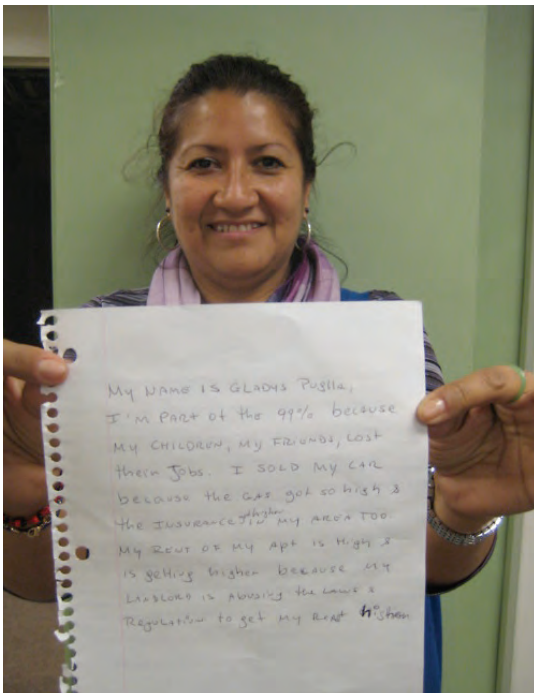 MY NAME IS GLADYS Puglla,
I'M PART of the 99% because
MY CHILDREN, MY FRIENDS, LOST
their Jobs. I SOLD MY CAR
because the GAS got so high &
the INSURANCE getting higher IN MY AREA TOO.
MY RENT OF MY Apt IS High &
is getting higher because MY
LANDLORD IS Abusing the LAWS &
Regulation to get MY Rent higher